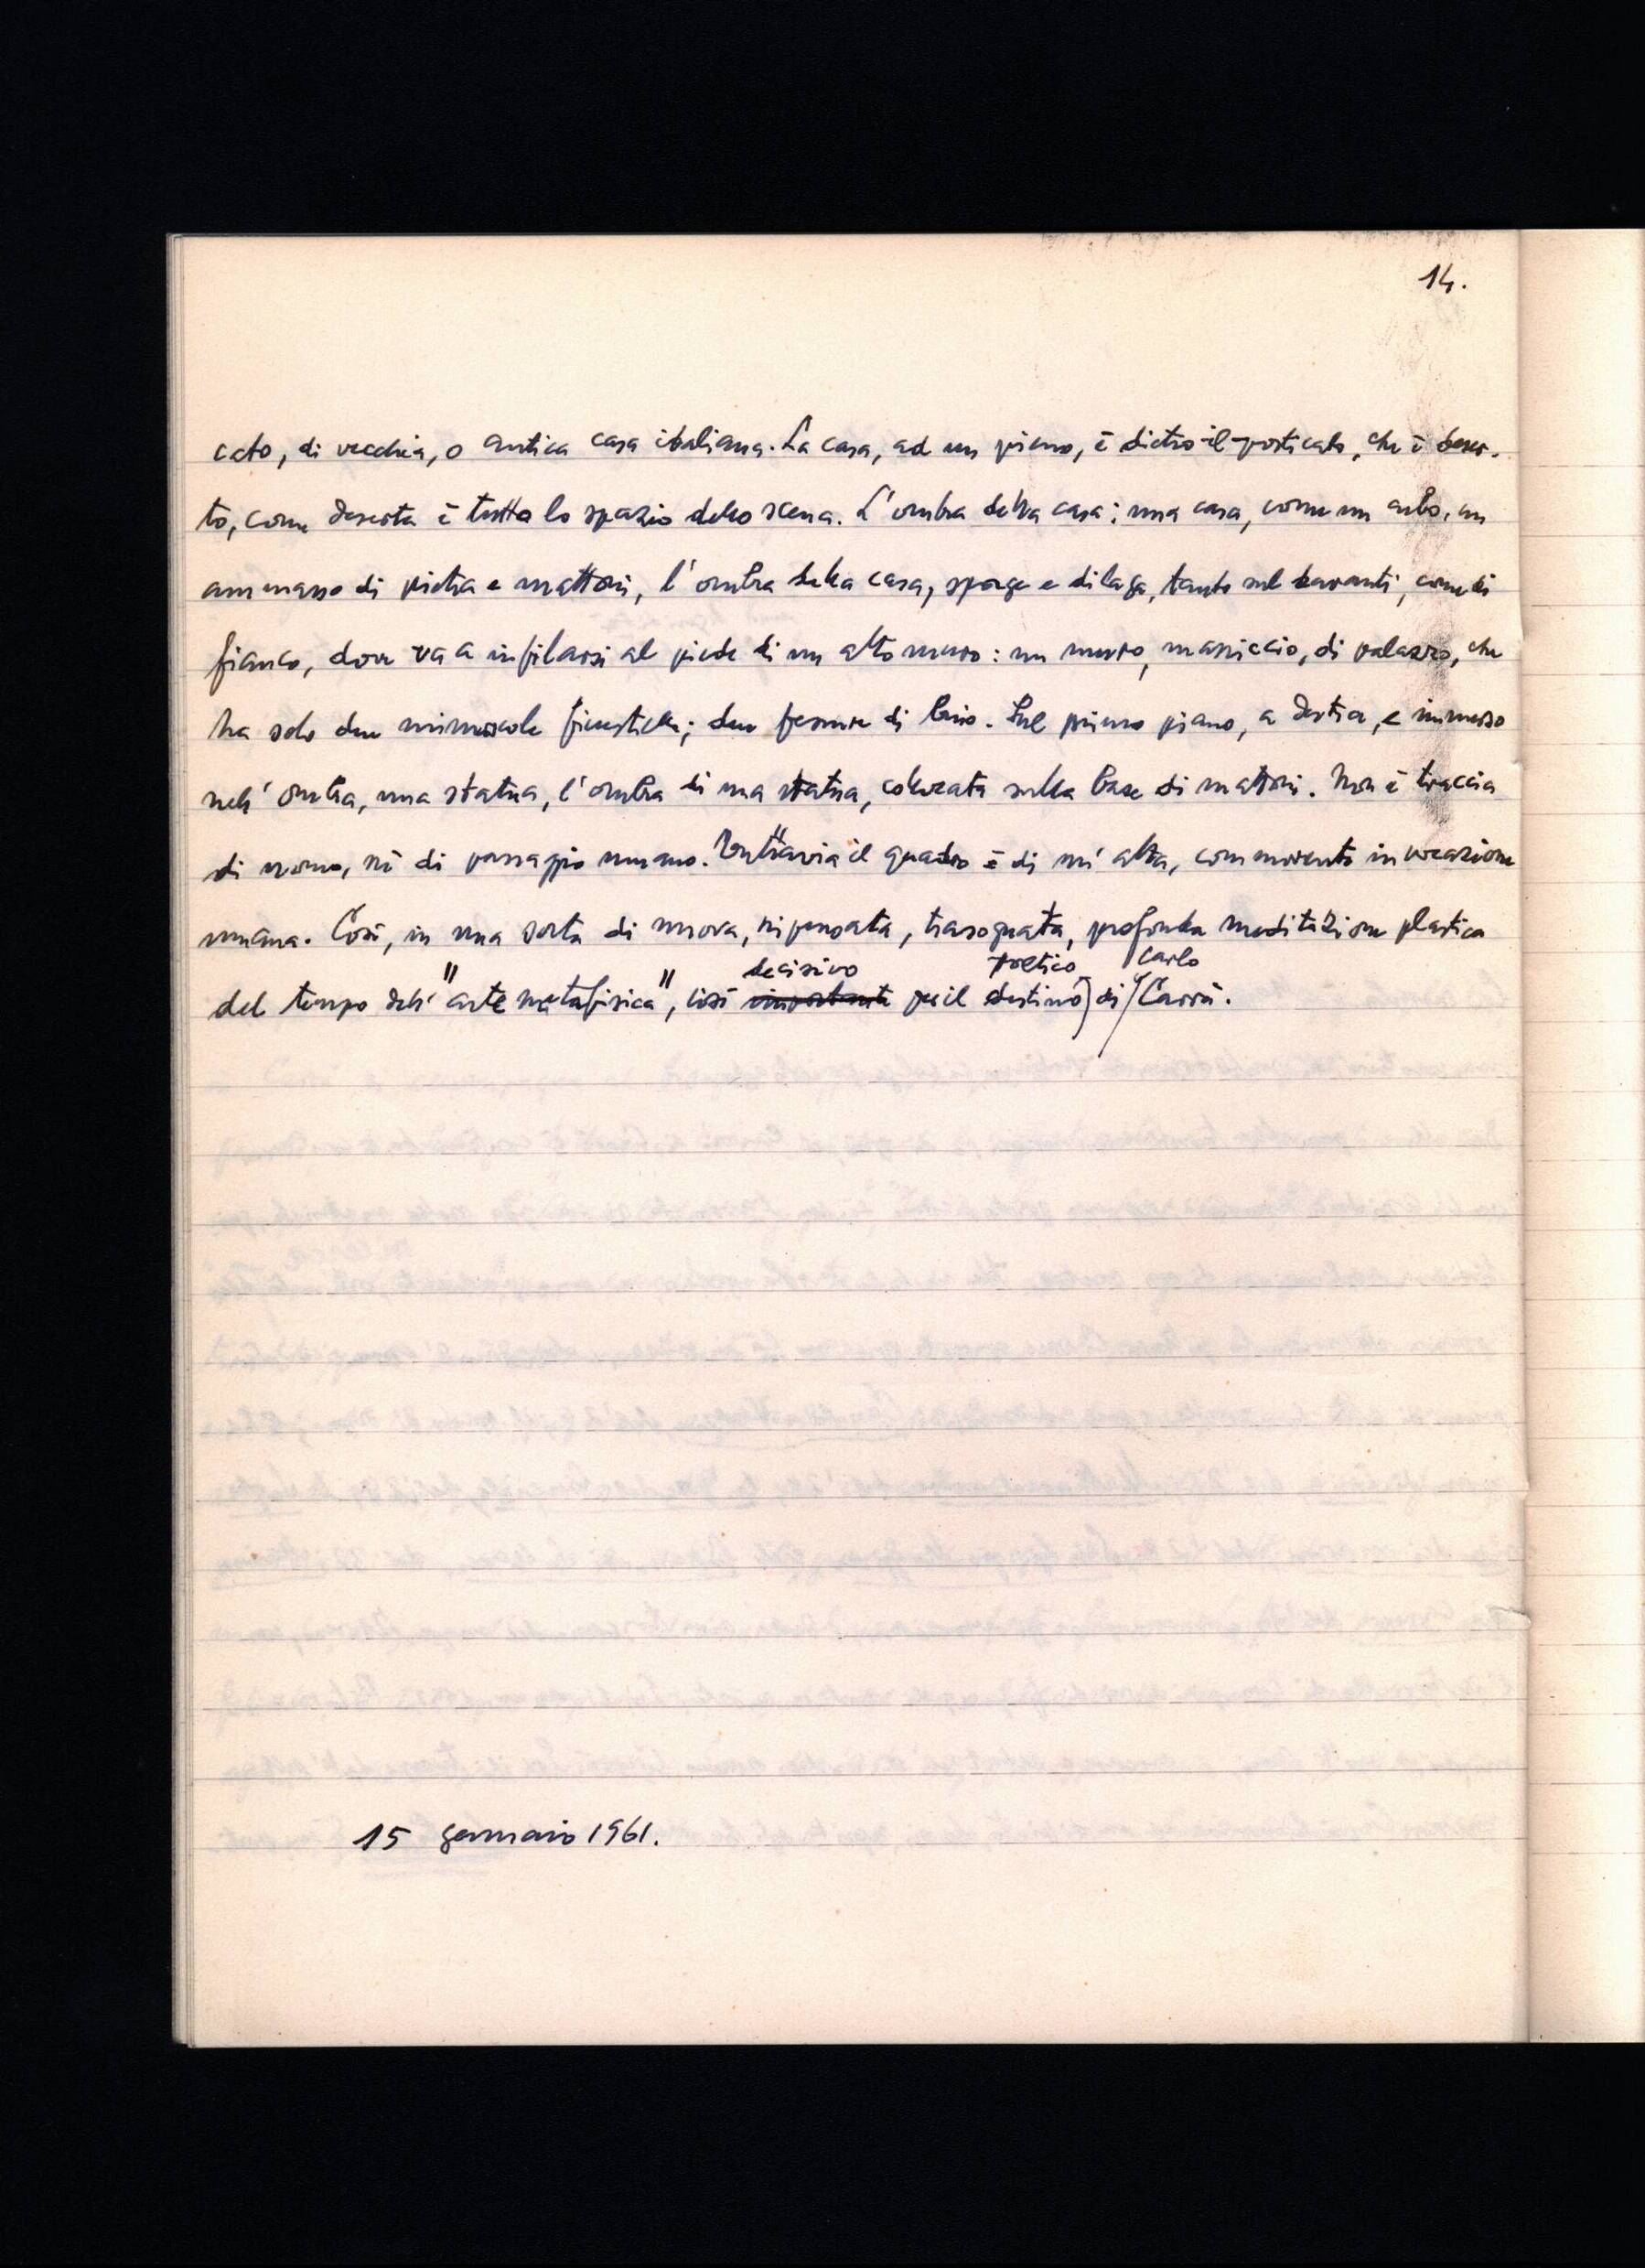 14.
cato, di vecchia, o antica casa italiana. La casa, ad un piano, è dietro il porticato, che è deser-
to, come deserta è tutto lo spazio della scena. L'ombra della casa: una casa, come un cubo, un
ammasso di pietra e mattoni, l'ombra della casa, sporge e dilaga, tanto sul davanti, come di
fianco, dove va a infilarsi al piede di un alto muro: un muro, massiccio, di palazzo, che
ha solo due minuscole finestrelle; due fessure di buio. Sul primo piano, a destra, e immerso
nell'ombra, una statua, l'ombra di una statua, collocata sulla base di mattoni. Non è traccia
di uomo, nè di passaggio umano. Tuttavia il quadro è di un'alta, commovente invocazione
umana. Così, in una sorta di nuova, ripensata, trasognata, profonda meditazione plastica
decisivo poetico Carlo
del tempo dell'"arte metafisica", così importante per il destino di Carrà.
15 gennaio 1961.